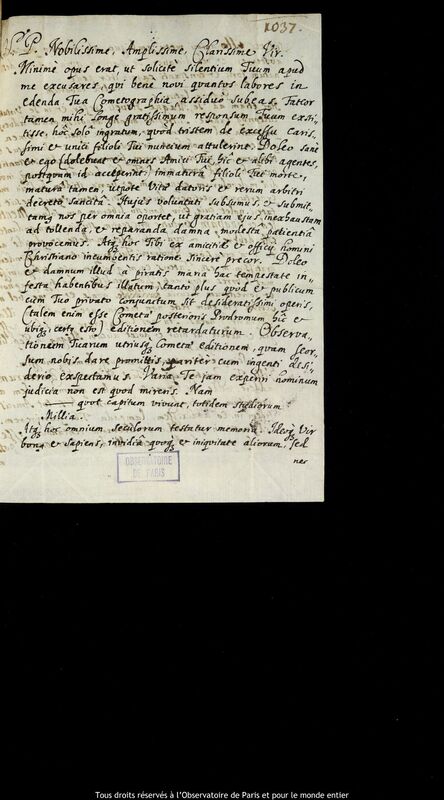 1037.
P. P. Nobilissime, Amplissime, Clarissime Vir.
Minimè opus erat, ut solicitè silentium Tuum apud
me excusares, qui bene novi quantos labores in
edenda Tua Cometographia assiduo subeas. Fateor
tamen mihi longè gratissimum responsum Tuum exti-
tisse, hoc solo ingratum, quod tristem de excessu caris-
simi & unici filioli Tui nuncium attulerit. Doleo sanè
& ego (dolebunt & omnes Amici Tui, hic & alibi agentes,
postquam id acceperint) immaturâ filioli Tui morte,
maturâ tamen, utpote Vitæ datoris & rerum arbitri
decreto sancitâ. Hujus voluntati subsumus, & submit-
tamq nos per omnia oportet, ut gratiam ejus inexhaustam
ad tollenda & reparanda damna, modestâ patientiâ
provocemus. Atq hoc Tibi ex amicitiæ & officij homini
Christiano incumbentis ratione sincere precor. Doleo
& damnum illud à piratis maria hac tempestate in-
festa habentibus illatum, tanto plus quod & publicum
cum Tuo privato conjunctum sit desideratissimi operis,
(talem enim esse Cometæ posterioris Prodromum hîc &
ubiq, certe esto) editionem retardaturum. Observa-
tionem Tuarum utriusq Cometæ editionem, quam seor-
sum nobis dare promittis, pariter cum ingenti desi-
derio exspectamus. Varia Te jam experiri hominum
judicia non est quod mireris. Nam
quot capitum vivunt, totidem studiorum
Millia.
Atq hoc omnium seculorum testatur memoria. Ideoq Vir
bonq & sapiens, invidiâ quoq & iniquitate aliorum, sed
nec
OBSERVATOIRE
DE PARIS
Tous droits réservés à l'Observatoire de Paris et pour le monde entier